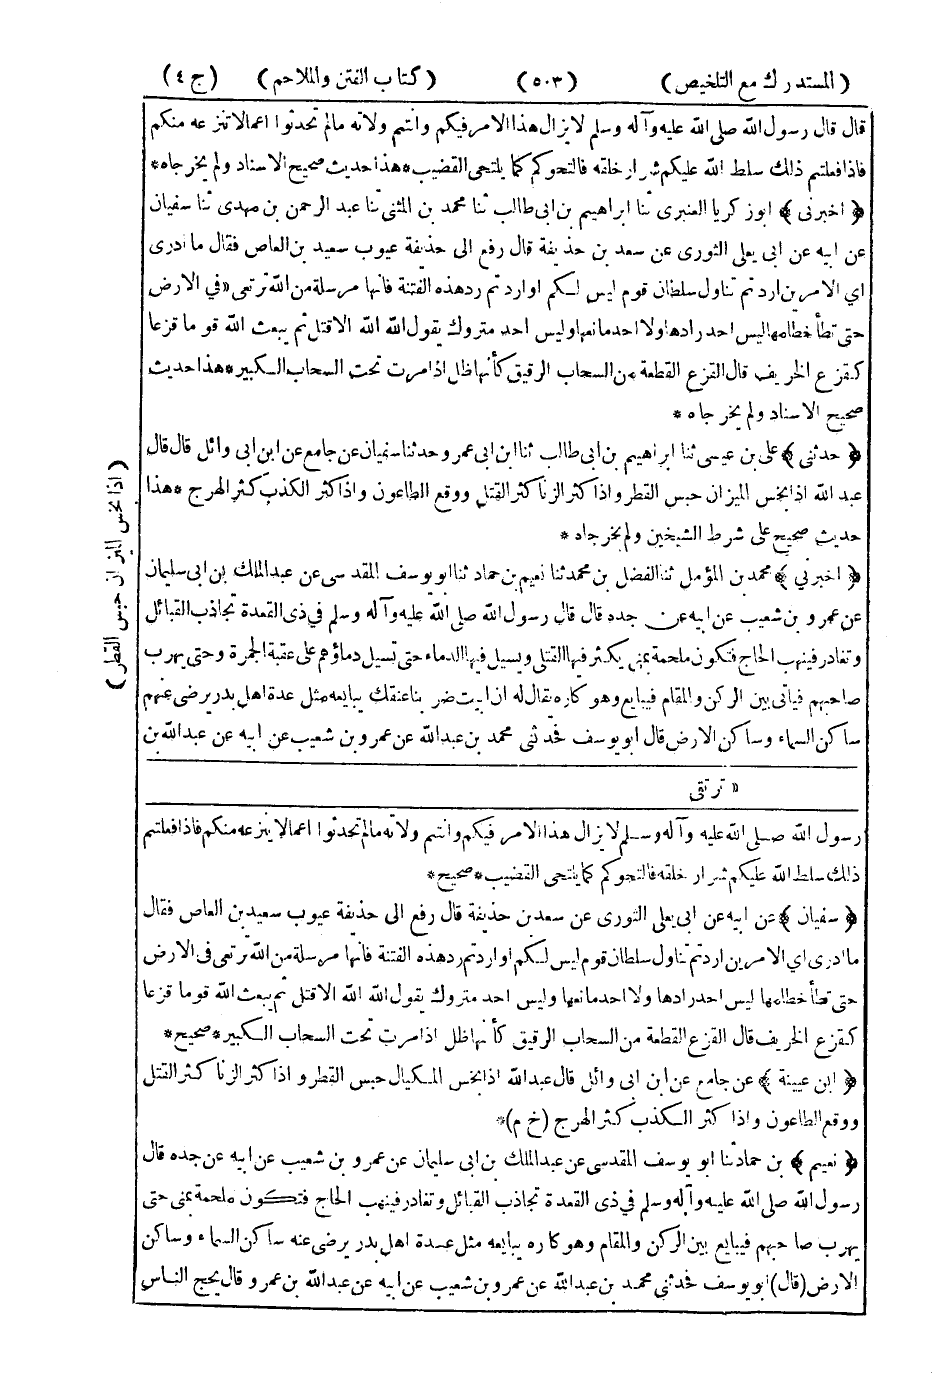 (المستدرك مع التلخيص) (٥٠٣) (كتاب الفتن والملاحم) (ج ٤)
قال قال رسول الله صلى الله عليه وآله وسلم لا يزال هذا الامر فيكم وانتم ولاته مالم تحدثوا اعمالا تنزعه منكم
فاذا فعلتم ذلك سلط الله عليكم شرار خلقه فالتحوكم كما يلتحى القضيب * هذا حديث صحيح الاسناد ولم يخرجاه *
﴿ اخبرنى ﴾ ابو زكريا العنبرى ثنا ابراهيم بن ابى طالب ثنا محمد بن المثنى ثنا عبد الرحمن بن مهدى ثنا سفيان
عن ابيه عن ابى يعلى الثورى عن سعد بن حذيفة قال رفع الى حذيفة عيوب سعيد بن العاص فقال ما ادرى
اي الامرين اردتم تناول سلطان قوم ليس لكم او اردتم رد هذه الفتنة فانها مرسلة من الله ترتعى « فى الارض
حتى تطأ خطامها ليس احد رادها ولا احد مانعها وليس احد متروك يقول الله الله الا قتل ثم يبعث الله قوما قزعا
كقزع الخريف قال القزع القطعة من السحاب الرقيق كأنها ظل اذا مرت تحت السحاب الكبير * هذا حديث
صحيح الاسناد ولم يخرجاه *
﴿ حدثنى ﴾ على بن عيسى ثنا ابراهيم بن ابى طالب ثنا ابن ابى عمر وحدثنا سفيان عن جامع عن ابن ابى وائل قال قال
عبد الله اذا بخس الميزان حبس القطر واذا كثر الزنا كثر القتل ووقع الطاعون واذا كثر الكذب كثر الهرج * هذا
حديث صحيح على شرط الشيخين ولم يخرجاه *
﴿ اخبرنى ﴾ محمد بن المؤمل ثنا الفضل بن محمد ثنا نعيم بن حماد ثنا ابو يوسف المقدسى عن عبد الملك بن ابى سليمان
عن عمرو بن شعيب عن ابيه عن جده قال قال رسول الله صلى الله عليه وآله وسلم فى ذى القعدة تجاذب القبائل
وتغادر فينهب الحاج فتكون ملحمة بمنى يكثر فيها القتلى ويسيل فيها الدماء حتى تسيل دماؤهم على عقبة الجمرة وحتى يهرب
صاحبهم فيأتى بين الركن والمقام فيبايع وهو كاره يقال له ان ابيت ضربنا عنقك يبايعه مثل عدة اهل بدر يرضى عنهم
ساكن السماء وساكن الارض قال ابو يوسف فحدثنى محمد بن عبد الله عن عمرو بن شعيب عن ابيه عن عبد الله بن
(اذا بخس الميزان حبس القطر)
« ترتقى
رسول الله صلى الله عليه وآله وسلم لا يزال هذا الامر فيكم وانتم ولاته مالم تحدثوا اعمالا ينزعه منكم فاذا فعلتم
ذلك سلط الله عليكم شرار خلقه فالتحوكم كما يلتحى القضيب * صحيح *
﴿ سفيان ﴾ عن ابيه عن ابى يعلى الثورى عن سعد بن حذيفة قال رفع الى حذيفة عيوب سعيد بن العاص فقال
ما ادرى اي الامرين اردتم تناول سلطان قوم ليس لكم او اردتم رد هذه الفتنة فانها مرسلة من الله ترتعى فى الارض
حتى تطأ خطامها ليس احد رادها ولا احد مانعها وليس احد متروك يقول الله الله الا قتل ثم يبعث الله قوما قزعا
كقزع الخريف قال القزع القطعة من السحاب الرقيق كأنها ظل اذا مرت تحت السحاب الكبير * صحيح *
﴿ ابن عيينة ﴾ عن جامع عن ابن ابى وائل قال عبد الله اذا بخس المكيال حبس القطر واذا كثر الزنا كثر القتل
ووقع الطاعون واذا كثر الكذب كثر الهرج (خ م) *
﴿ نعيم ﴾ بن حماد ثنا ابو يوسف المقدسى عن عبد الملك بن ابى سليمان عن عمرو بن شعيب عن ابيه عن جده قال
رسول الله صلى الله عليه وآله وسلم فى ذى القعدة تجاذب القبائل وتغادر فينهب الحاج فتكون ملحمة بمنى حتى
يهرب صاحبهم فيبايع بين الركن والمقام وهو كاره يبايعه مثل عدة اهل بدر يرضى عنه ساكن السماء وساكن
الارض (قال) ابو يوسف فحدثنى محمد بن عبد الله عن عمرو بن شعيب عن ابيه عن عبد الله بن عمرو قال يحج الناس